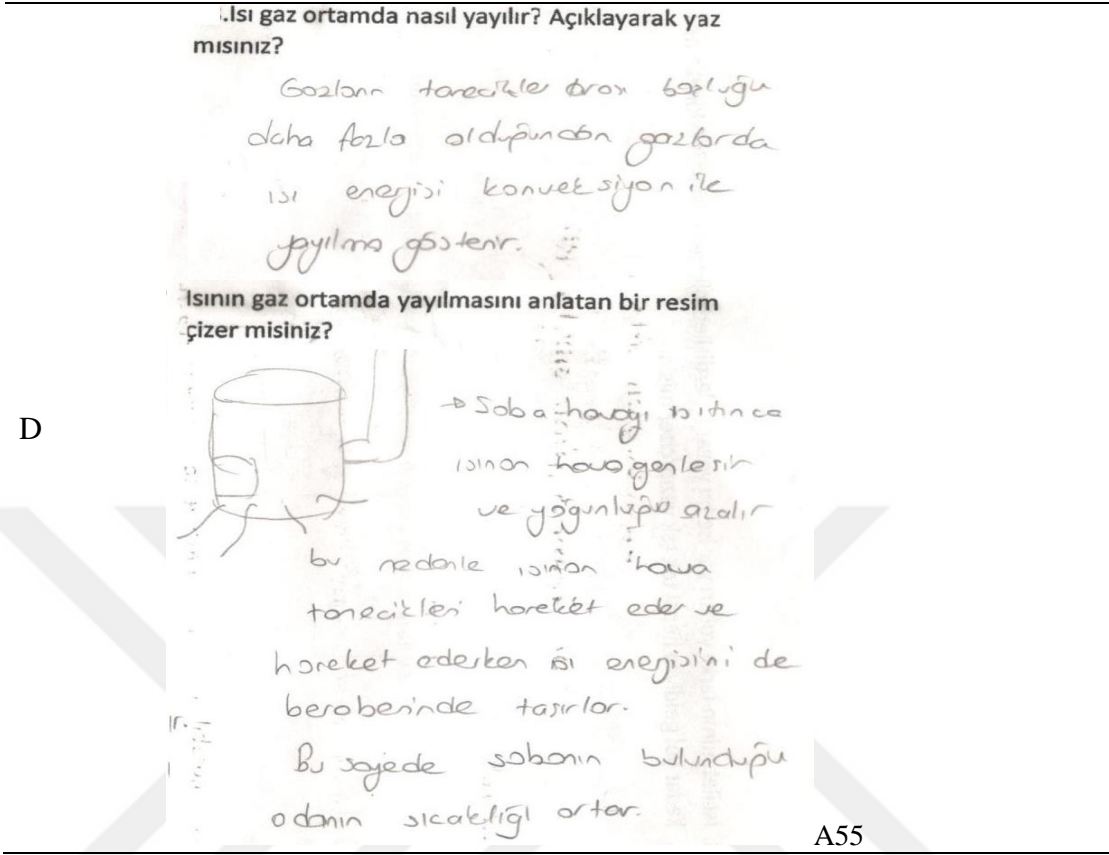 .Isı gaz ortamda nasıl yayılır? Açıklayarak yaz
mısınız?
Gazların tanecikler arası boşluğu
daha fazla olduğundan gazlarda
ısı enerjisi konveksiyon ile
yayılma gösterir.
Isının gaz ortamda yayılmasını anlatan bir resim
çizer misiniz?
→ Soba havayı ısıtınca
ısınan hava genleşir
ve yoğunluğu azalır
bu nedenle ısınan hava
tanecikleri hareket eder ve
hareket ederken ısı enerjisini de
beraberinde taşırlar.
Bu sayede sobanın bulunduğu
odanın sıcaklığı artar.
ır.
D
A55